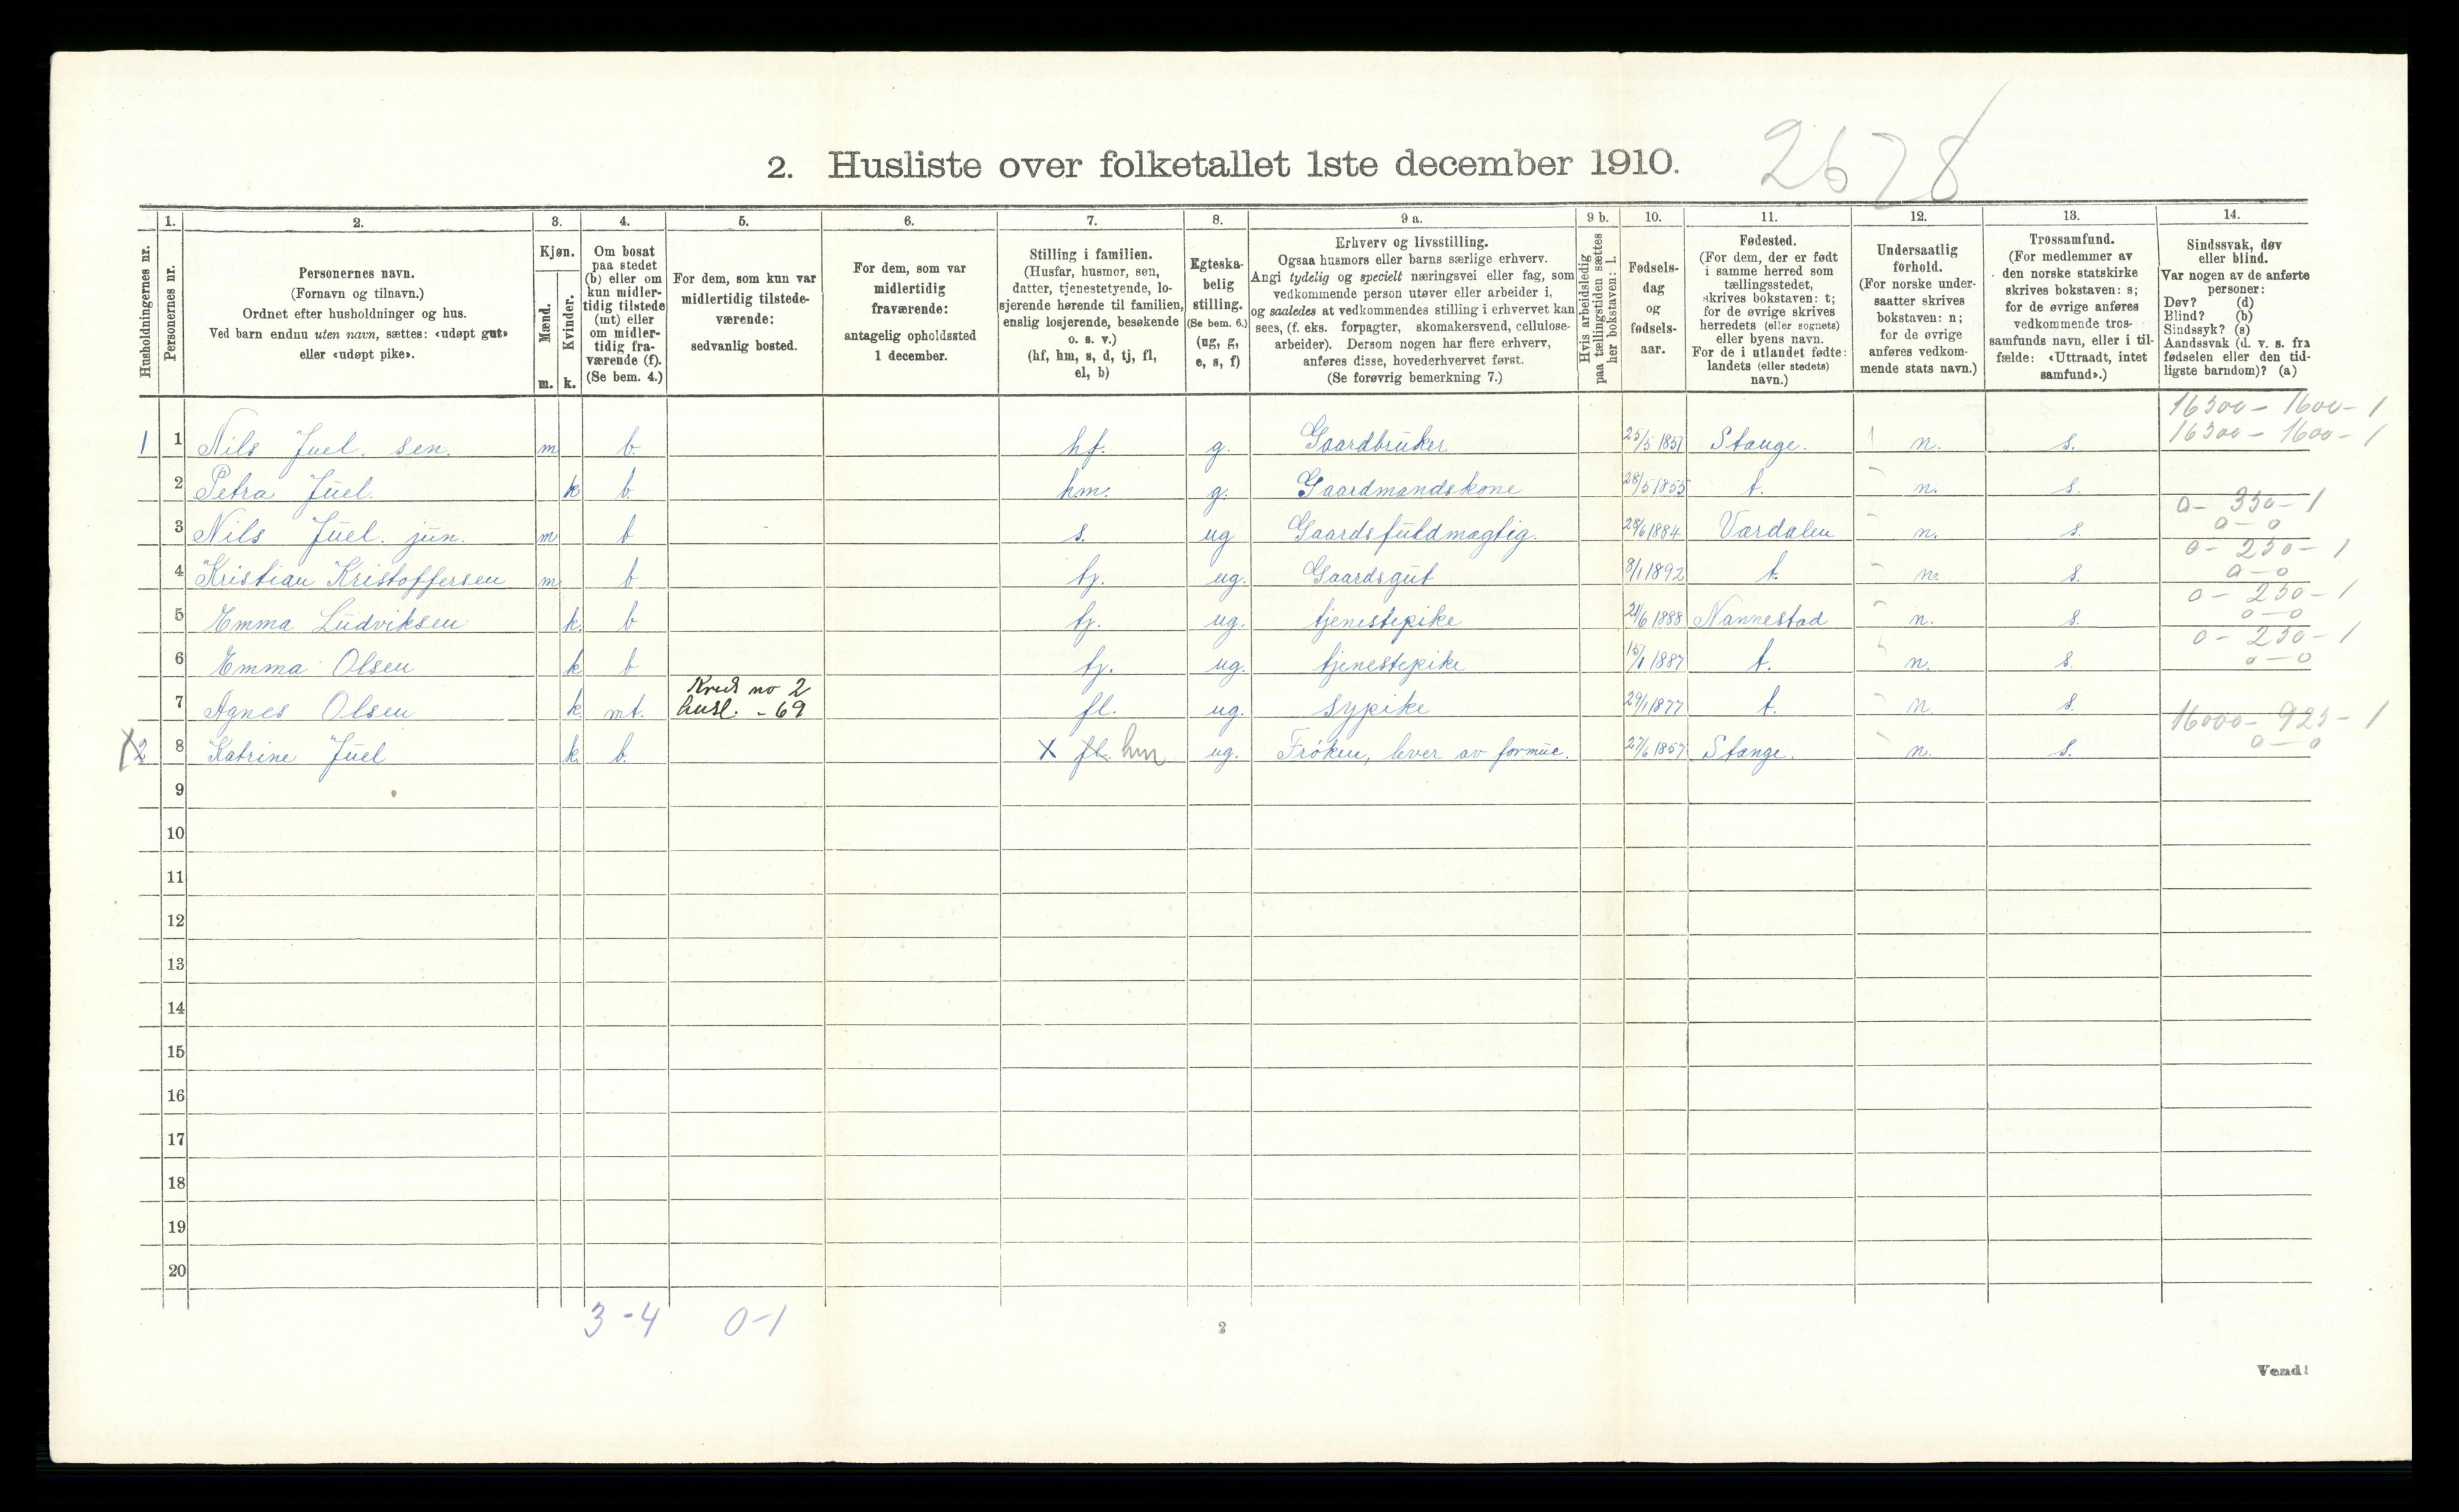 2678
2. Husliste over folketallet 1ste december 1910.
1. 2. 3. 4. 5. 6. 7. 8. 9 a. 9 b. 10. 11. 12. 13. 14.
Husholdningernes nr.
Personernes nr.
Personernes navn.
(Fornavn og tilnavn.)
Ordnet efter husholdninger og hus.
Ved barn endnu uten navn, sættes: «udøpt gut»
eller «udøpt pike».
Kjøn.
Mænd.
Kvinder.
m. k.
Om bosat
paa stedet
(b) eller om
kun midler-
tidig tilstede
(mt) eller
om midler-
tidig fra-
værende (f).
(Se bem. 4.)
For dem, som kun var
midlertidig tilstede-
værende:
sedvanlig bosted.
For dem, som var
midlertidig
fraværende:
antagelig opholdssted
1 december.
Stilling i familien.
(Husfar, husmor, søn,
datter, tjenestetyende, lo-
sjerende hørende til familien,
enslig losjerende, besøkende
o. s. v.)
(hf, hm, s, d, tj, fl,
el, b)
Egteska-
belig
stilling.
(Se bem. 6.)
(ug, g,
e, s, f)
Erhverv og livsstilling.
Ogsaa husmors eller barns særlige erhverv.
Angi tydelig og specielt næringsvei eller fag, som
vedkommende person utøver eller arbeider i,
og saaledes at vedkommendes stilling i erhvervet kan
sees, (f. eks. forpagter, skomakersvend, cellulose-
arbeider). Dersom nogen har flere erhverv,
anføres disse, hovederhvervet først.
(Se forøvrig bemerkning 7.)
Hvis arbeidsledig
paa tællingstiden sættes
her bokstaven: l.
Fødsels-
dag
og
fødsels-
aar.
Fødested.
(For dem, der er født
i samme herred som
tællingsstedet,
skrives bokstaven: t;
for de øvrige skrives
herredets (eller sognets)
eller byens navn.
For de i utlandet fødte:
landets (eller stedets)
navn.)
Undersaatlig
forhold.
(For norske under-
saatter skrives
bokstaven: n;
for de øvrige
anføres vedkom-
mende stats navn.)
Trossamfund.
(For medlemmer av
den norske statskirke
skrives bokstaven: s;
for de øvrige anføres
vedkommende tros-
samfunds navn, eller i til-
fælde: «Uttraadt, intet
samfund».)
Sindssvak, døv
eller blind.
Var nogen av de anførte
personer:
Døv? (d)
Blind? (b)
Sindssyk? (s)
Aandssvak (d. v. s. fra
fødselen eller den tid-
ligste barndom)? (a)
16300 - 1600 - 1
1 1 Nils Juel. sen. m b. hf. g. Gaardbruker 25/5 1851 Stange. n. s. 16300 - 1600 - 1
2 Petra Juel. k b. hm. g. Gaardmandskone 28/5 1855 t. n. s.
0 - 350 - 1
3 Nils Juel. jun. m b s. ug Gaardsfuldmægtig. 28/6 1884 Værdalen n. s. 0 - 0
0 - 250 - 1
4 Kristian Kristoffersen m b tj. ug. Gaardsgut 8/1 1892 t. n. s. 0 - 0
0 - 250 - 1
5 Emma Ludviksen k. b tj. ug. tjenestepike 21/6 1888 Nannestad n. s. 0 - 0
0 - 250 - 1
6 Emma Olsen k b tj. ug. tjenestepike 15/1 1887 t. n. s. 0 - 0
Kreds no 2
7 Agnes Olsen k. mt. husl. - 69 fl. ug. sypike 29/1 1877 t. n s.
16000 - 925 - 1
X 2 8 Katrine Juel k. b. X fl. hm ug. Frøken, lever av formue. 27/6 1857 Stange. n. s. 0 - 0
9
10
11
12
13
14
15
16
17
18
19
20
3 - 4 0 - 1
2
Vend!